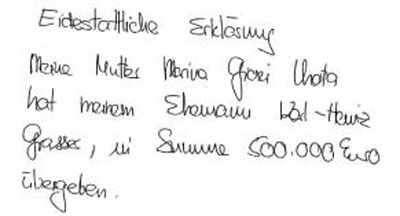 Eidesstattliche Erklärung
Meine Mutter Marina Giori Lhota
hat meinem Ehemann Karl-Heinz
Grasser, in Summe 500.000 Euro
übergeben.